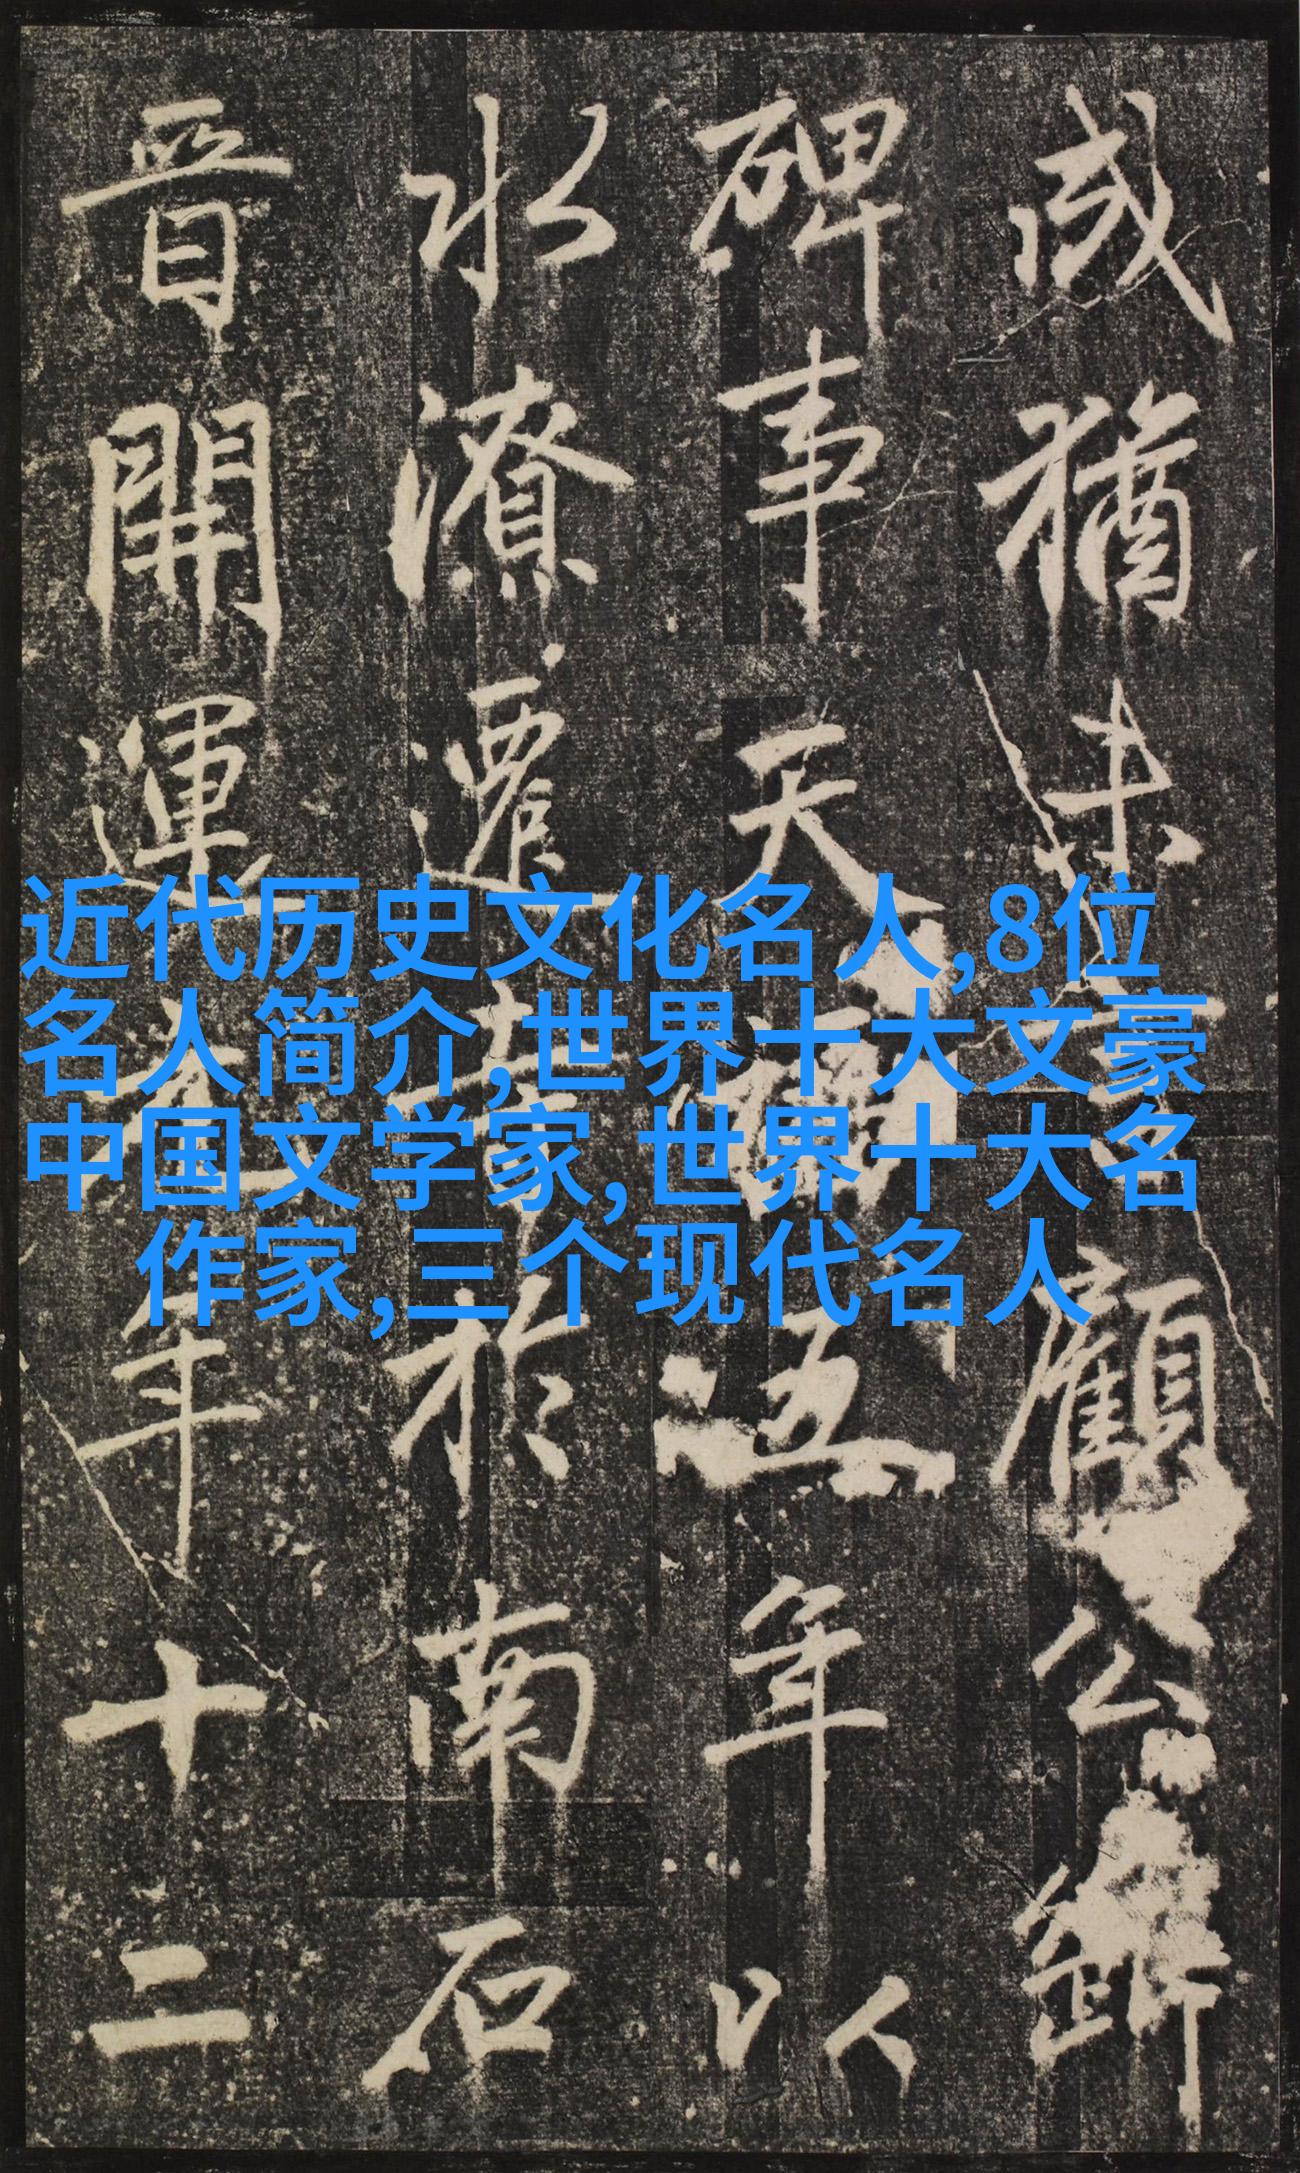 猶未顧公
碑事天五年以
水潦遷於南石
晉開運年十二
近代历史文化名人,8位
名人简介,世界十大文豪
中国文学家,世界十大名
作家,三个现代名人